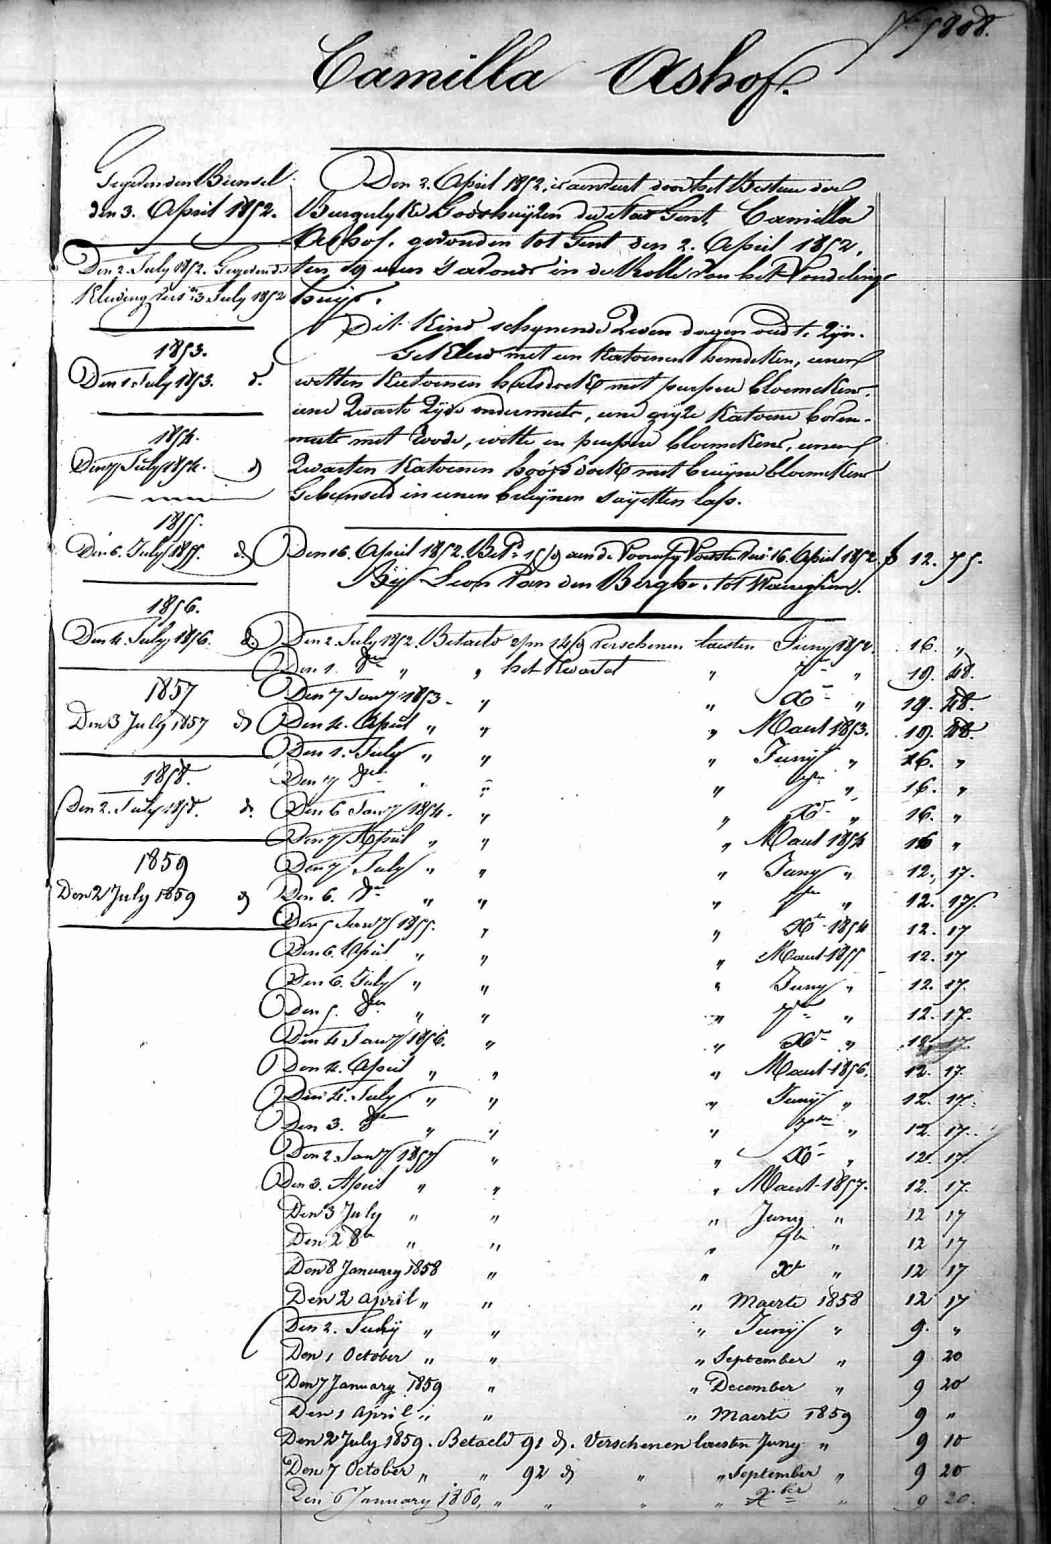 N.° 5808.
Camilla Ashof.
Gegeven den Bunsel
den 3. April 1852.
Den 2. July 1852. Gegevend.
Kleding vers 3 July 1852
1853.
Den 1. July 1853. d.
1854.
Den 7 July 1854. d
1855.
Den 6. July 1855. d
1856.
Den 4. July 1856. d
1857
Den 3 July 1857 d
1858.
Den 2. July 1858. d.
1859
Den 2 July 1859 d
Den 2. April 1852. is aenveert door het Bestuer der
Burgelyke Godshuijzen der Stad Gent, Camilla
Ashof. gevonden tot Gent den 2. April 1852,
ten 9 uren 's avonds in de Rolle van het Vondeling-
huijs.
Dit Kind schynende zeven dagen oud te zijn.
Gekleed met een Katoenen hemdeken, eenen
witten Katoenen halsdoek met purpere bloemekens,
eene zwarte zijde ondermuts, eene gryze Katoene boven-
muts met roode, witte en purpere bloemekens, eenen
zwarten Katoenen hoofddoek met bruijne bloemekens
Gebunseld in eenen bruijnen saijetten lap.
Den 16. April 1852. Bet.d 15/9 aen de Voorzg Voedster vers: 16. April 1852 f 12. 75.
Bij Leon Van den Berghe, tot Waereghem.
Den 2. July 1852. Betaeld 2/m 14/9 verschenen laesten Juny 1852. 16. "
Den 1. 8ber " " het Kwartal " 7ber " 19. 48.
Den 7 Janry 1853. " " Xber " 19. 48.
Den 4. April " " " Maert 1853. 19. 48.
Den 1. July " " " Junij " 16. "
Den 7 8ber " " " 7ber " 16. "
Den 6 Janry 1854. " " Xber " 16. "
Den 7 April " " " Maert 1854 16 "
Den 7 July " " " Juny " 12. 17.
Den 6. 8ber " " " 7ber " 12. 17
Den 5 Janry 1855. " " Xber 1854 12. 17
Den 6. April " " " Maert 1855 12. 17
Den 6. July " " " Juny " 12. 17.
Den 5. 8ber " " " 7ber " 12. 17.
Den 4 Janry 1856. " " Xber " 12. 17.
Den 4. April " " " Maert 1856. 12. 17.
Den 4. July " " " Junij " 12. 17.
Den 3. 8ber " " " 7ber " 12. 17.
Den 2. Janry 1857 " " Xber " 12. 17.
Den 3. April " " " Maert 1857. 12. 17.
Den 3 July " " " Juny " 12 17
Den 2 8br " " " 7br " 12 17
Den 8 January 1858 " " Xbr " 12 17
Den 2 April " " " Maerte 1858 12 17
Den 2. Julij " " " Junij " 9. "
Den 1 October " " " September " 9 20
Den 7 January 1859 " " December " 9 20
Den 1 April " " " Maerte 1859 9 "
Den 2 July 1859. Betaeld 91 d. Verschenen laesten Juny " 9 10
Den 7 October " " 92 d " " September " 9 20
Den 6 January 1860, " " " " Xber " 9 20.